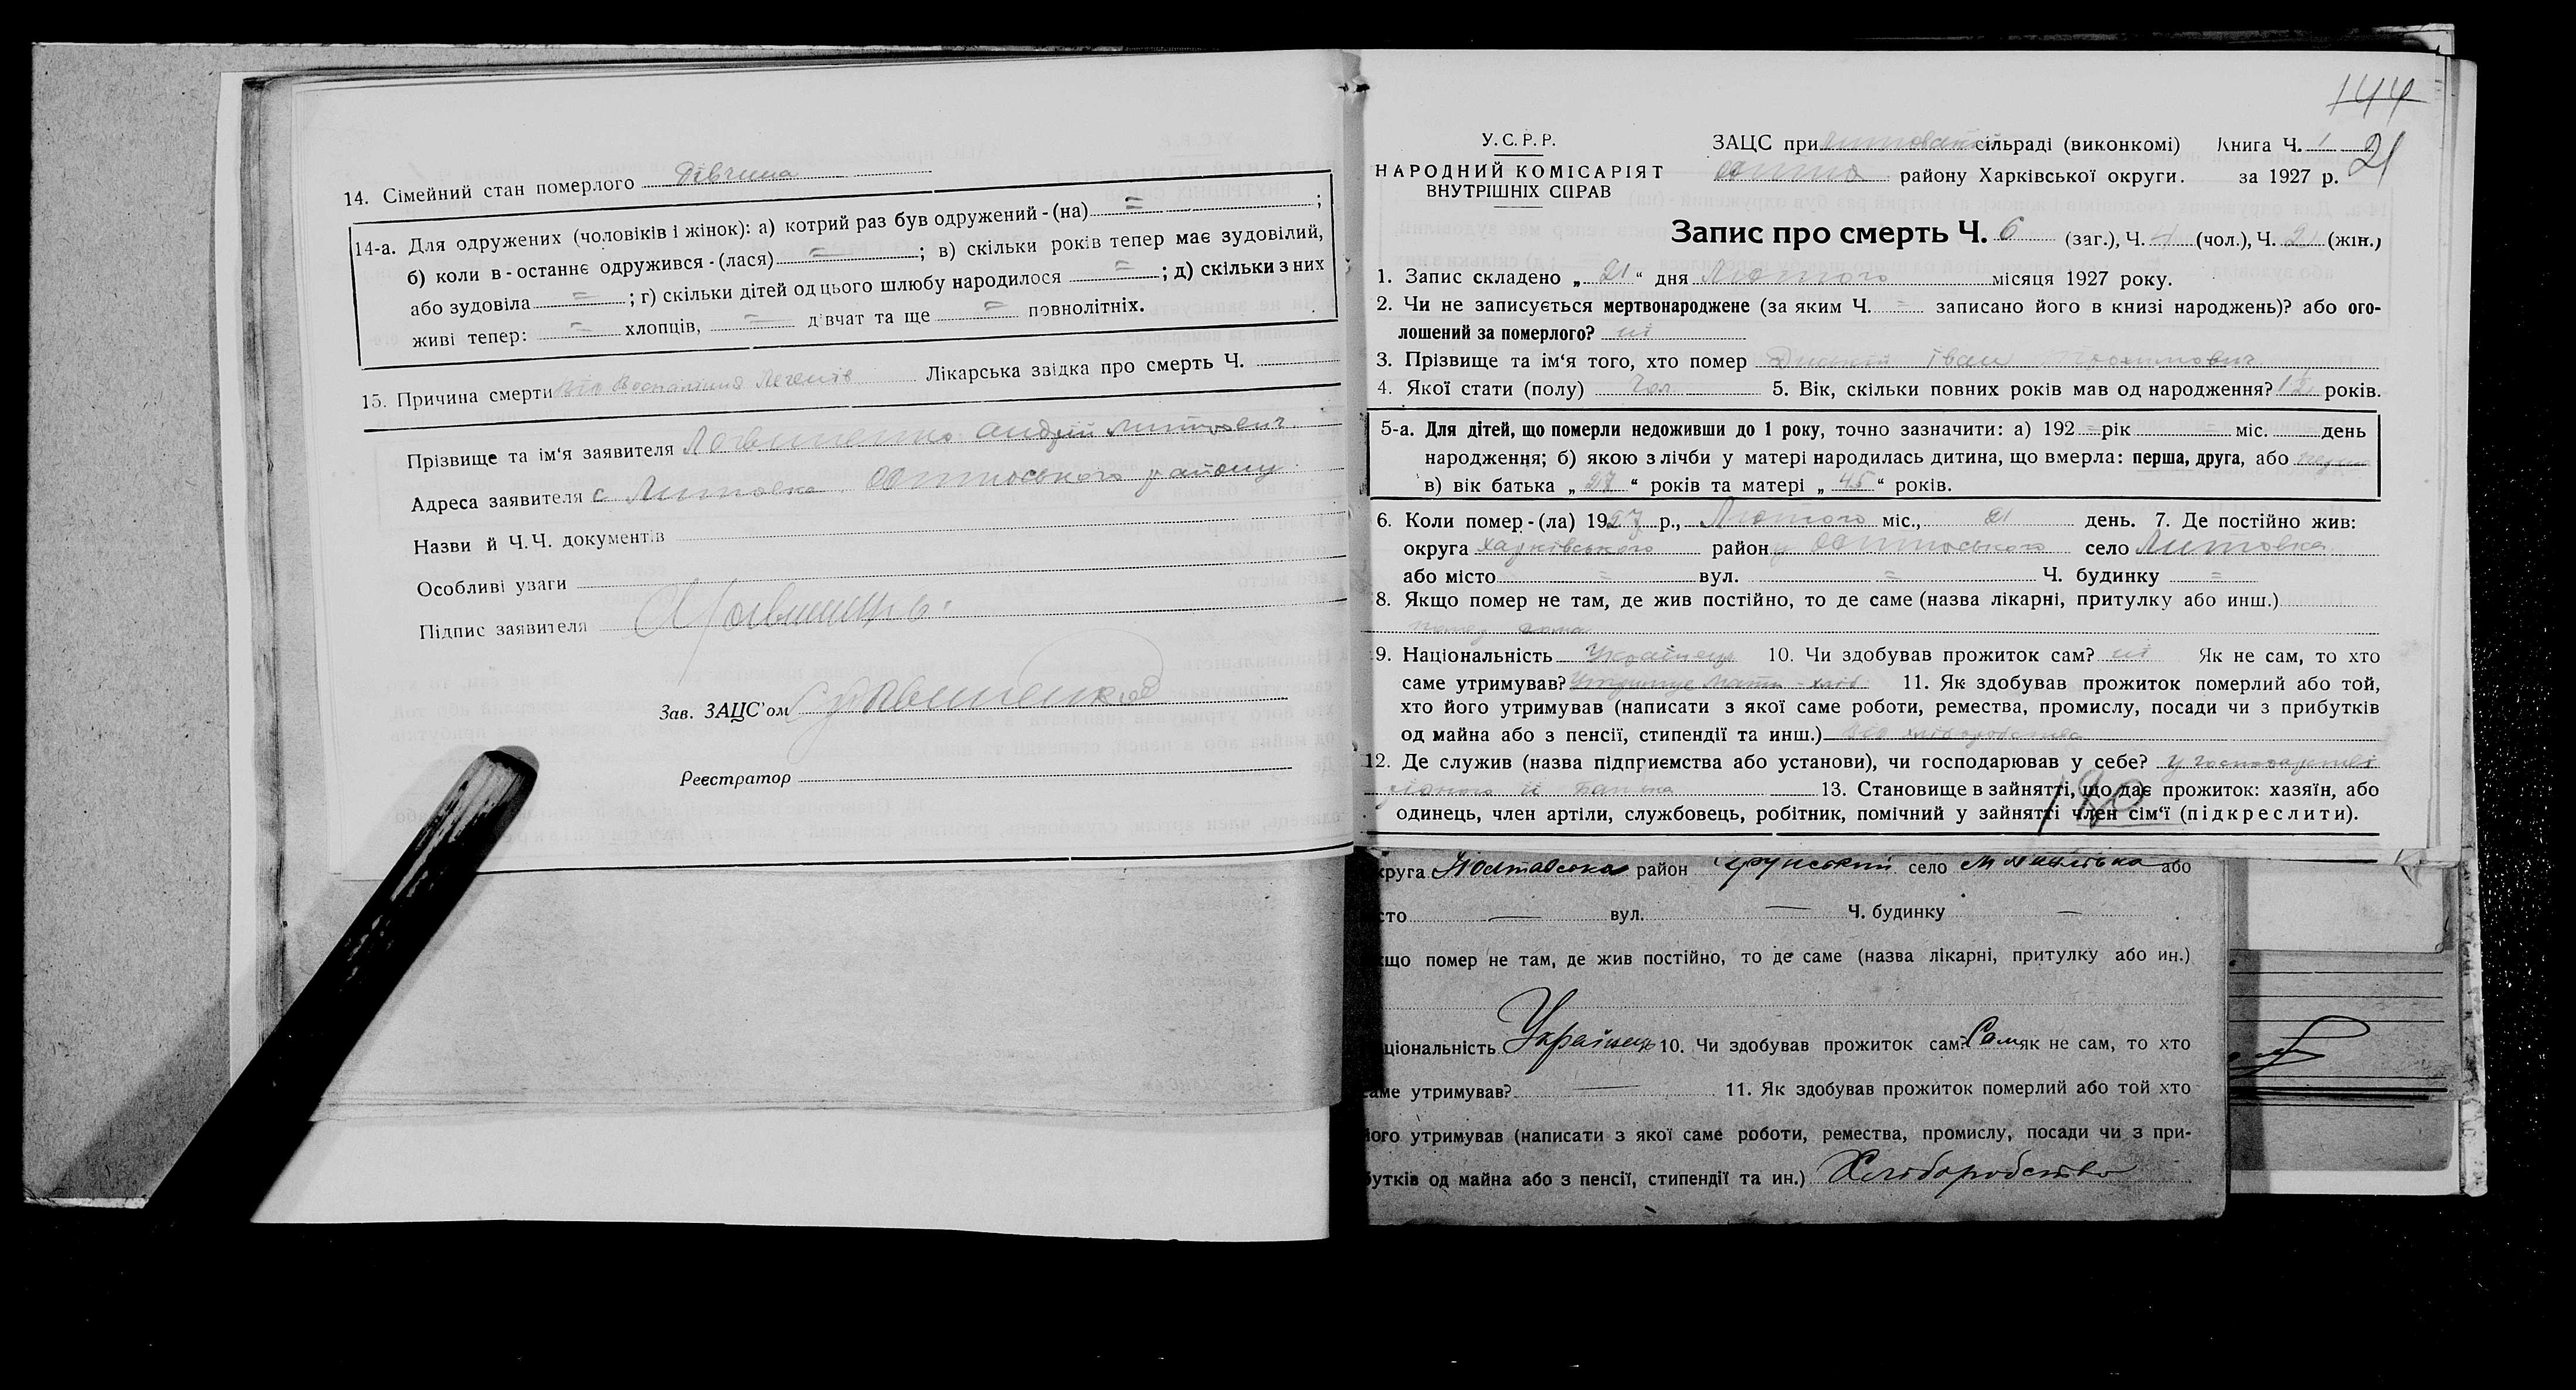 14. Сімейний стан померлого Дівчина
14-а. Для одружених (чоловіків і жінок): а) котрий раз був одружений-(на) = ;
б) коли в-останнє одружився-(лася) = ; в) скільки років тепер має зудовілий,
або зудовіла = ; г) скільки дітей од цього шлюбу народилося = ; д) скільки з них
живі тепер: = хлопців, = дівчат та ще = повнолітніх.
15. Причина смерти Легенів Лікарська звідка про смерть Ч.
Прізвище та ім'я заявителя Андрій
Адреса заявителя с Литовка району
Назви й Ч.Ч. документів
Особливі уваги
Підпис заявителя
Зав. ЗАЦС'ом
Реєстратор
144
21
У.С.Р.Р.
НАРОДНИЙ КОМІСАРІЯТ
ВНУТРІШНІХ СПРАВ
ЗАЦС при сільраді (виконкомі) Книга Ч. 1
району Харківської округи. за 1927 р.
Запис про смерть Ч. 6 (заг.), Ч. 4 (чол.), Ч. 2 (жін.)
1. Запис складено „ 21 " дня Лютого місяця 1927 року.
2. Чи не записується мертвонароджене (за яким Ч. = записано його в книзі народжень)? або ого-
лошений за померлого? ні
3. Прізвище та ім'я того, хто помер Іван
4. Якої стати (полу) Чол. 5. Вік, скільки повних років мав од народження? років.
5-а. Для дітей, що померли недоживши до 1 року, точно зазначити: а) 192 = рік = міс. день
народження; б) якою з лічби у матері народилась дитина, що вмерла: перша, друга, або
в) вік батька „ 27 " років та матері „ 45 " років.
6. Коли помер-(ла) 1927 р., Лютого міс., 21 день. 7. Де постійно жив:
округа Харківського район село Литовка
або місто = вул. = Ч. будинку =
8. Якщо помер не там, де жив постійно, то де саме (назва лікарні, притулку або инш.)
помер дома
9. Національність Українець 10. Чи здобував прожиток сам? ні Як не сам, то хто
саме утримував? 11. Як здобував прожиток померлий або той,
хто його утримував (написати з якої саме роботи, ремества, промислу, посади чи з прибутків
од майна або з пенсії, стипендії та инш.) від хліборобства
12. Де служив (назва підприємства або установи), чи господарював у себе? у господарстві
13. Становище в зайнятті, що дає прожиток: хазяїн, або
одинець, член артіли, службовець, робітник, помічний у зайнятті член сім'ї (підкреслити).
180
круга Полтавська район село або
сто — вул. — Ч. будинку —
кщо помер не там, де жив постійно, то де саме (назва лікарні, притулку або ин.)
ціональність Українець 10. Чи здобував прожиток сам? Сам як не сам, то хто
аме утримував? — 11. Як здобував прожиток померлий або той хто
його утримував (написати з якої саме роботи, ремества, промислу, посади чи з при-
бутків од майна або з пенсії, стипендії та ин.) Хліборобство